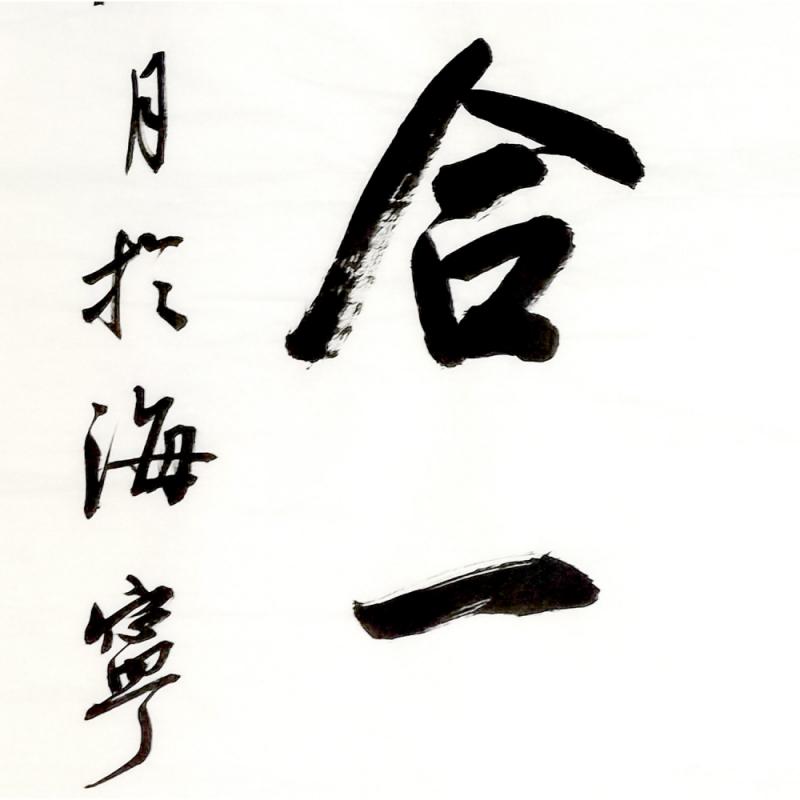 合一
月於海寧